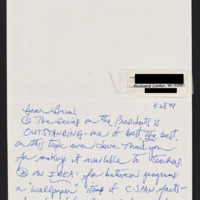 Richland Center, WI 53581
4.28.98
Dear Brian,
① The series on the Presidents is
OUTSTANDING - one of best the best,
on this topic ever done. Thank you
for making it available to teachers.
② AN IDEA: for between programs
a "Wallpaper" strip of C-SPAN facts-